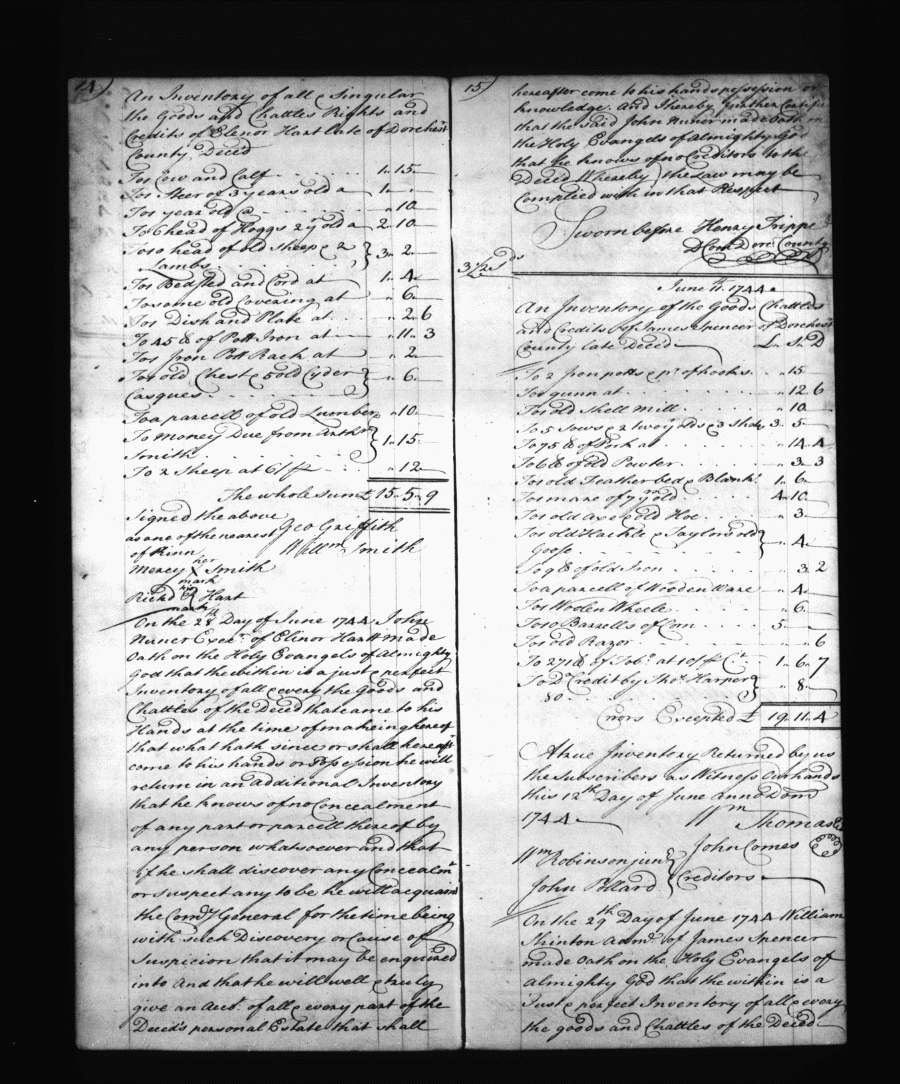 14)
An Inventory of all & Singular
the Goods and Chattles Rights and
Credits of Elenor Hart late of Dorchestr
County, Deced
To 1 Cow and Calf . . . . . 1 - 15 -
To 1 Steer of 3 years old a 1 - " -
To 1 year old @ . . . . . " 10 -
To 6 head of Hoggs 2 yr old a 2 - 10
To 10 head of old Sheep & 2 } 3 - 2 -
Lambs . . . . .
To 1 Bedsted and Cord at 1 - 4 -
To some old Covering at " 6 -
To 1 Dish and Plate at . . " 2 - 6
To 45 lb of Pott Iron at " 11 - 3
To 1 Iron Pott Rack at " 2 -
To 1 old Chest & 5 old Cyder } " 6 -
Casques . . . . .
To a parcell of old Lumber " 10 -
To Money Due from Arthr } 1 - 15 -
Smith
To 2 Sheep at 6/ . . . " 12 -
The whole Sum £ 15 - 5 - 9
Signed the above
as one of the nearest Geo Griffith
of kinn Willm Smith
Mercy her X mark Smith
Richd his mark Hart
On the 28th Day of June 1744 John
Nuner Execr. of Elinor Hart made
Oath on the Holy Evangels of Almighty
God that the within is a just & perfect
Inventory of all & every the Goods and
Chattles of the Deced that came to his
Hands at the time of makeing hereof
that what hath since or shall hereaft
come to his hands or Possession he will
return in an additional Inventory
that he knows of no Concealment
of any part or parcell thereof by
any person whatsoever and that
if he shall discover any Concealmt
or suspect any to be he will acquaint
the Comry General for the time being
with such Discovery or Cause of
Suspicion that it may be enquired
into And that he will well & truly
give an Acct. of all & every part of the
Deced's personal Estate that shall
15)
hereafter come to his hands posession or
knowledge. And I hereby further Certifie
that the said John Nuner made Oath on
the Holy Evangels of Almighty God
that he knows of no Creditors to the
Deced Whereby the Law may be
Complied with in that Respect
Sworn before Henry Tripp
D Com Dorct. County
June 11. 1744.
An Inventory of the Goods Chattles
and Credits of James Spencer of Dorchestr
County late Deced L S D
To 2 Iron potts & pr of hooks . . " 15 -
To 1 gunn at . . . . . " 12 6
To 1 old Shell Mill . . . . " 10 -
To 5 Sows & 2 Shots 3 - 5 -
To 75 lb of Pork at . . . " 14 - 4
To 6 lb of old Pewter . . . " 3 - 3
To 1 old Feather bed & Blankt 1 - 6 -
To 1 mare of 7 yr old . . . 4 - 10
To 1 old Axe & old Hoe . . . " 3 -
To 1 old Hackle & Taylors old } " 4 -
Goose . . . . .
To 9 lb of old Iron . . . " 3 - 2
To a parcell of Wooden Ware " 4 -
To 1 Woolen Wheele . . . " 6 -
To 10 Barrells of Corn . . 5 -
To 1 old Razor . . . . " " 6
To 271 lb of Tobo. at 10/ Ct. 1 - 6 - 7
To Do Credit by Thos. Harper } " 8 -
80
Errors Excepted £ 19 - 11 - 4
A true Inventory Returned by us
the Subscribers as Witness Our hands
this 12th Day of June Anno Dom
1744 Wm Thomas
John Comes
Wm Robinson junr }
John Pollard } Creditors
On the 29th Day of June 1744 William
Shinton Admr. of James Spencer
made Oath on the Holy Evangels of
Almighty God that the within is a
Just & perfect Inventory of all & every
the goods and Chattles of the Deced